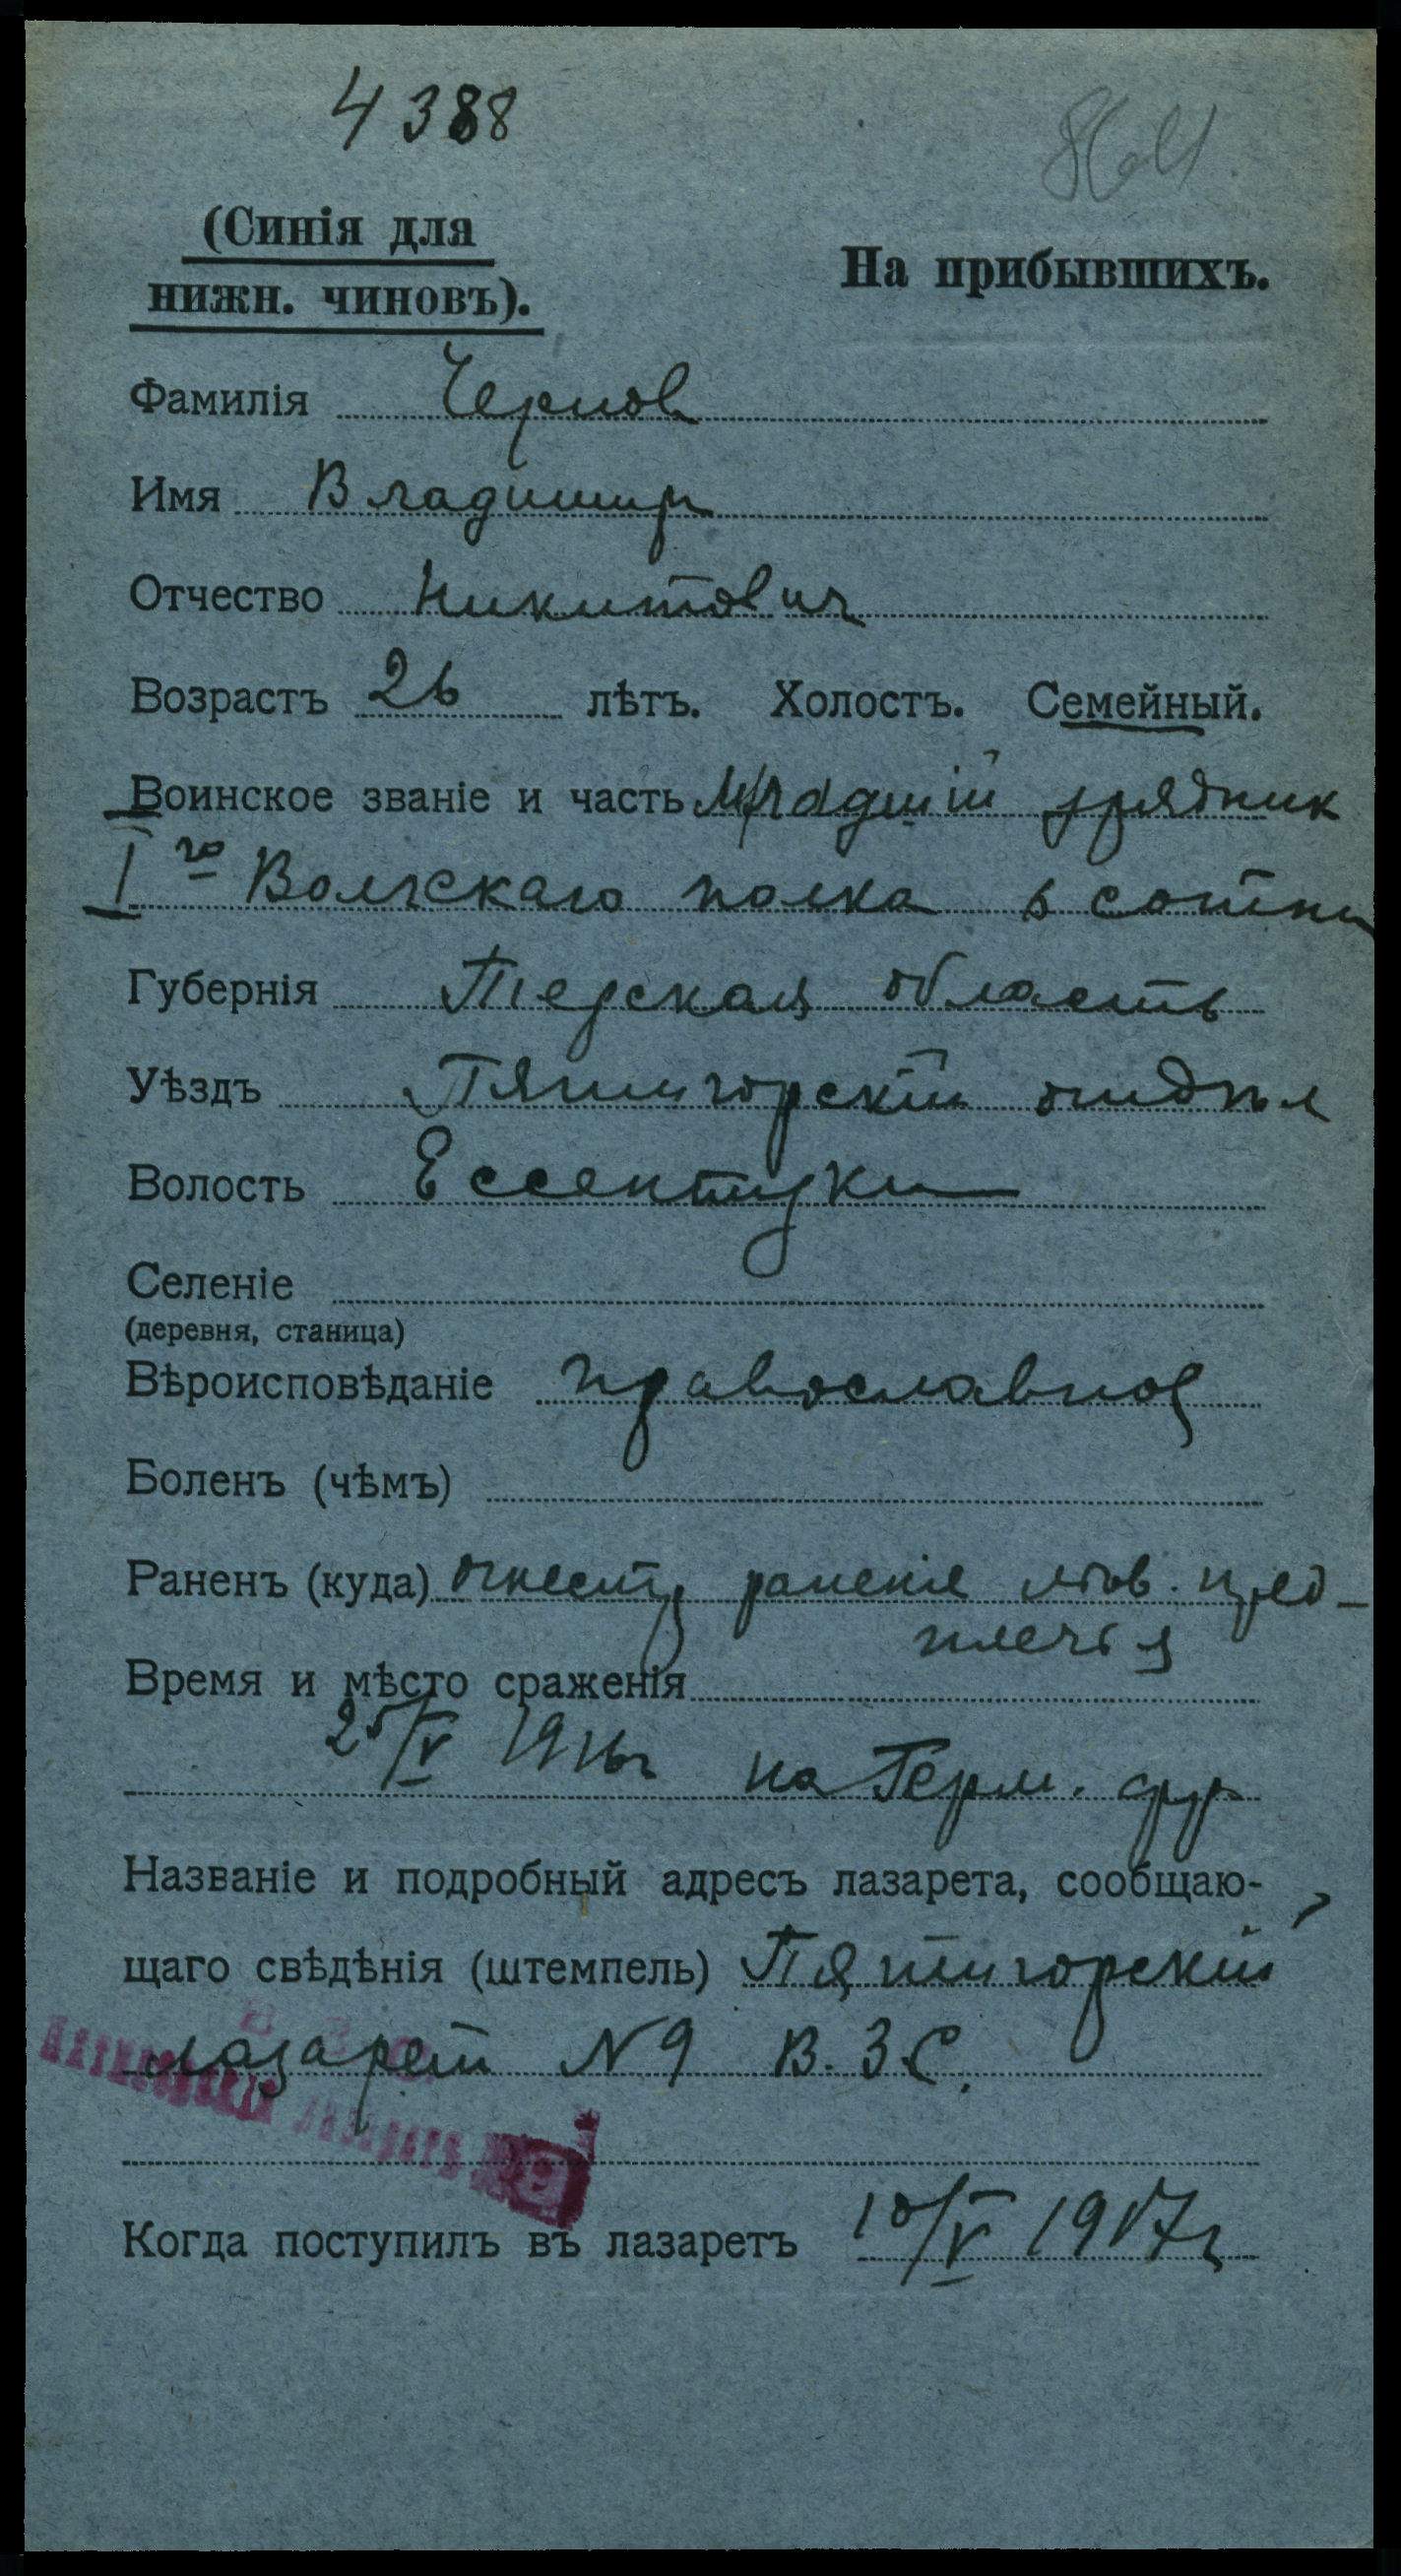 4388
(Синія для
нижн. чиновъ).
На прибывшихъ.
Фамилія Чернов
Имя Владимир
Отчество Никитович
Возрастъ 26 лѣтъ. Холостъ. Семейный.
Воинское званіе и часть Младшій урядник
I го Волжскаго полка 6 сотни
Губернія Терская область
Уѣздъ Пятигорскій отдѣл
Волость Ессентуки
Селеніе
(деревня, станица)
Вѣроисповѣданіе православное
Боленъ (чѣмъ)
Раненъ (куда) огнестр ранение лѣв. пред-
плечья
Время и мѣсто сраженія
25/V 1916г на Герм. фр
Названіе и подробный адресъ лазарета, сообщаю-
щаго свѣдѣнія (штемпель) Пятигорскій
лазарет N 9 В.З.С.
Когда поступилъ въ лазаретъ 10/V 1917г